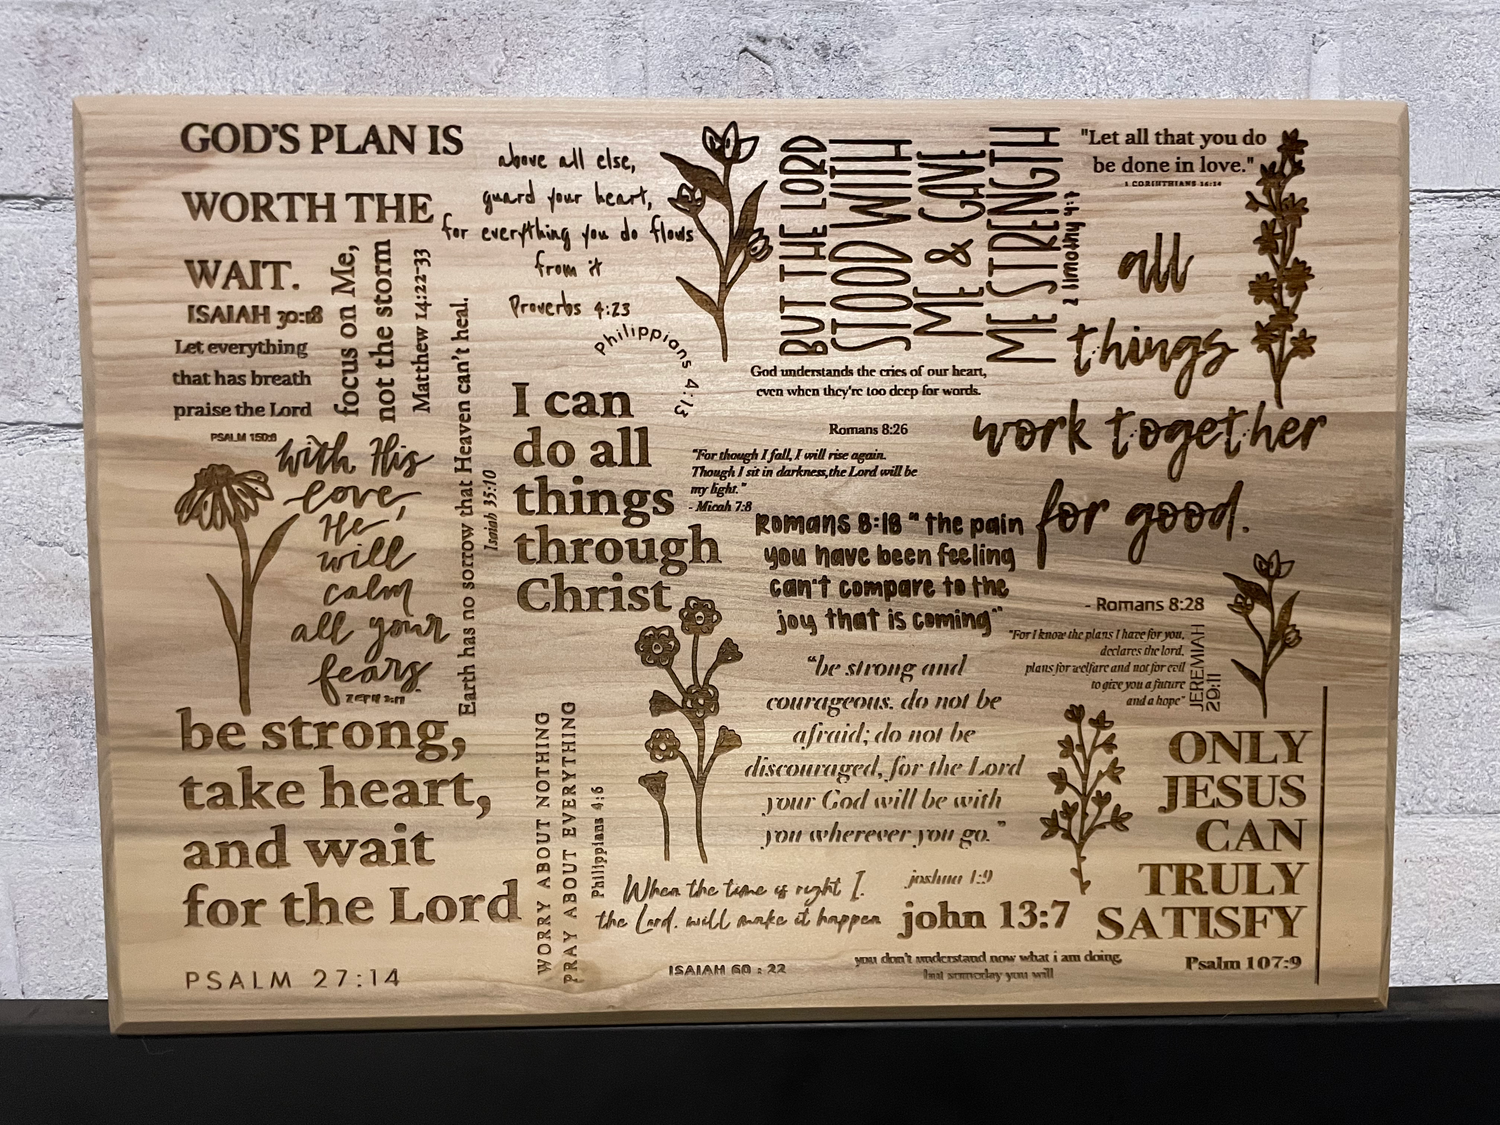 GOD'S PLAN IS
WORTH THE
WAIT.
ISAIAH 30:18
Let everything
that has breath
praise the Lord
PSALM 150:6
focus on Me,
not the storm
Matthew 14:22-33
above all else,
guard your heart,
for everything you do flows
from it
Proverbs 4:23
BUT THE LORD
STOOD WITH
ME & GAVE
ME STRENGTH
2 Timothy 4:7
"Let all that you do
be done in love."
1 CORINTHIANS 16:14
all
things
work together
for good.
- Romans 8:28
with His
love,
He
will
calm
all your
fears.
ZEPH 3:17
Earth has no sorrow that Heaven can't heal.
Isaiah 35:10
Philippians 4:13
I can
do all
things
through
Christ
God understands the cries of our heart,
even when they're too deep for words.
Romans 8:26
"For though I fall, I will rise again.
Though I sit in darkness,the Lord will be
my light."
- Micah 7:8
Romans 8:18 " the pain
you have been feeling
can't compare to the
joy that is coming"
"For I know the plans I have for you,
declares the lord,
plans for welfare and not for evil
to give you a future
and a hope"
JEREMIAH
29:11
"be strong and
courageous. do not be
afraid; do not be
discouraged, for the Lord
your God will be with
you wherever you go."
joshua 1:9
be strong,
take heart,
and wait
for the Lord
PSALM 27:14
WORRY ABOUT NOTHING
PRAY ABOUT EVERYTHING
Philippians 4:6
When the time is right I.
the Lord. will make it happen
ISAIAH 60 : 22
john 13:7
you don't understand now what i am doing,
but someday you will
ONLY
JESUS
CAN
TRULY
SATISFY
Psalm 107:9